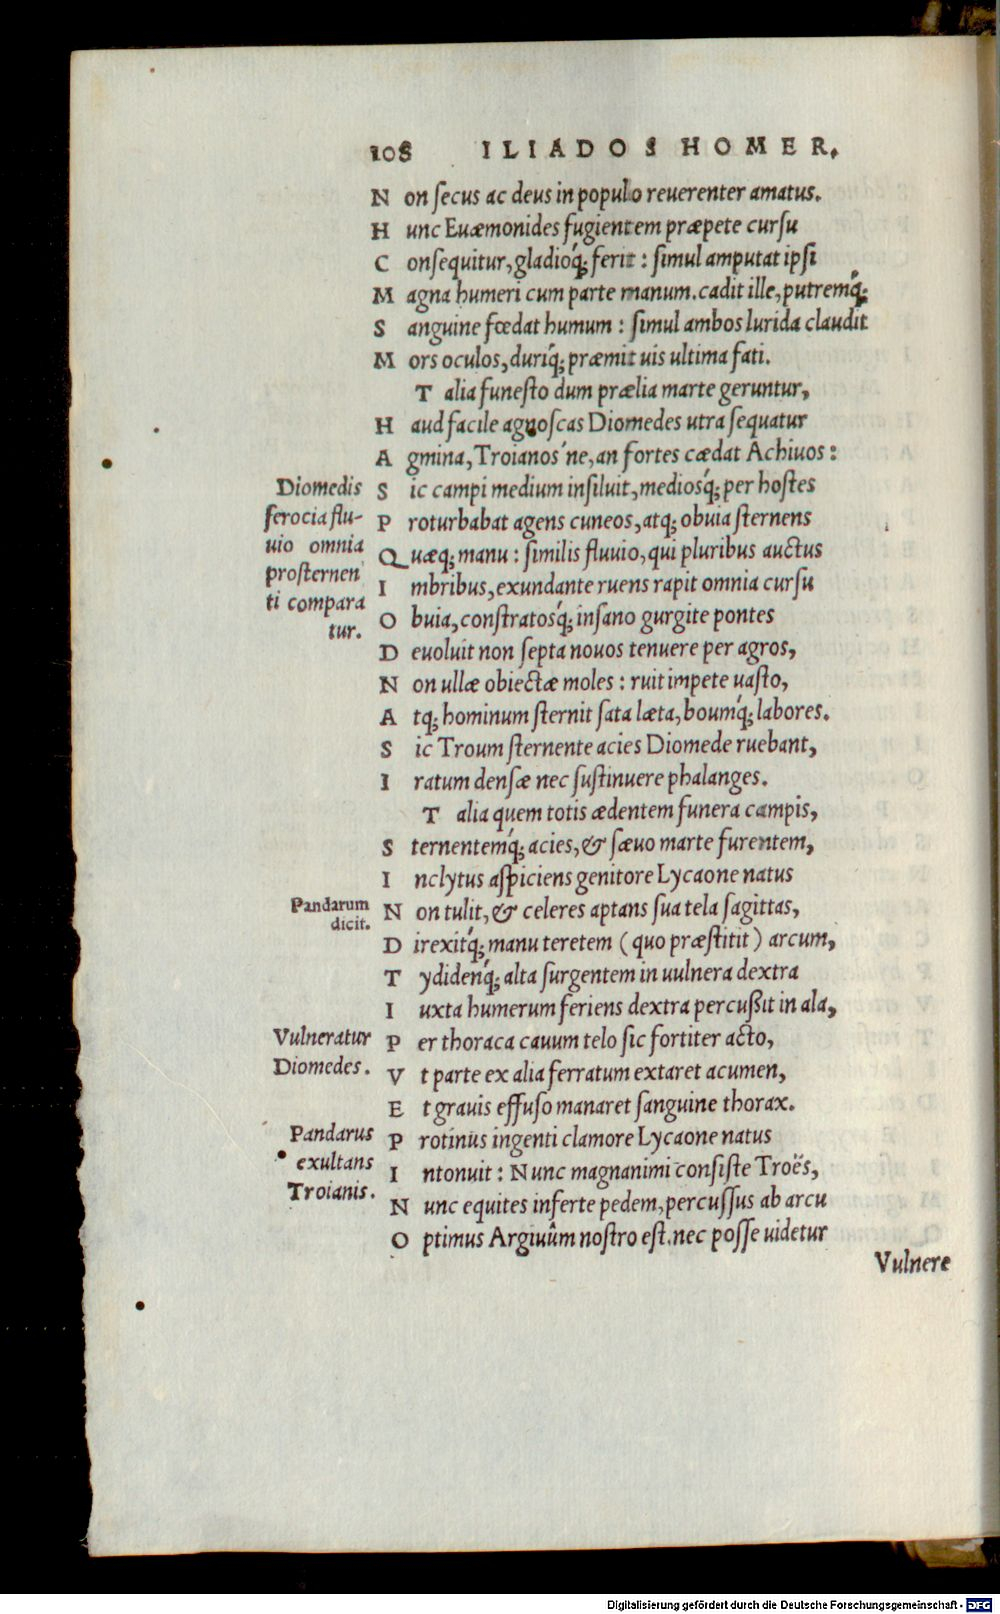 108 ILIADOS HOMER.
Non secus ac deus in populo reuerenter amatus.
Hunc Euæmonides fugientem præpete cursu
Consequitur, gladioq́; ferit : simul amputat ipsi
Magna humeri cum parte manum. cadit ille, putremq́;
Sanguine fœdat humum : simul ambos lurida claudit
Mors oculos, duriq́; præmit uis ultima fati.
Talia funesto dum prælia marte geruntur,
Haud facile agnoscas Diomedes utra sequatur
Agmina, Troianos ́ne, an fortes cædat Achiuos :
Diomedis
ferocia flu-
uio omnia
prosternen
ti compara
tur.
Sic campi medium insiluit, mediosq́; per hostes
Proturbabat agens cuneos, atq; obuia sternens
Quæq; manu : similis fluuio, qui pluribus auctus
Imbribus, exundante ruens rapit omnia cursu
Obuia, constratosq́; insano gurgite pontes
Deuoluit non septa nouos tenuere per agros,
Non ullæ obiectæ moles : ruit impete uasto,
Atq; hominum sternit sata læta, boumq́; labores.
Sic Troum sternente acies Diomede ruebant,
Iratum densæ nec sustinuere phalanges.
Talia quem totis ædentem funera campis,
Sternentemq́; acies, & sæuo marte furentem,
Inclytus aspiciens genitore Lycaone natus
Pandarum
dicit.
Non tulit, & celeres aptans sua tela sagittas,
Direxitq́; manu teretem (quo præstitit) arcum,
Tydidenq́; alta surgentem in uulnera dextra
Iuxta humerum feriens dextra percußit in ala,
Vulneratur
Diomedes.
Per thoraca cauum telo sic fortiter acto,
Vt parte ex alia ferratum extaret acumen,
Et grauis effuso manaret sanguine thorax.
Pandarus
exultans
Troianis.
Protinus ingenti clamore Lycaone natus
Intonuit : Nunc magnanimi consiste Troës,
Nunc equites inferte pedem, percussus ab arcu
Optimus Argiuûm nostro est. nec posse uidetur
Vulnere
Digitalisierung gefördert durch die Deutsche Forschungsgemeinschaft - DFG